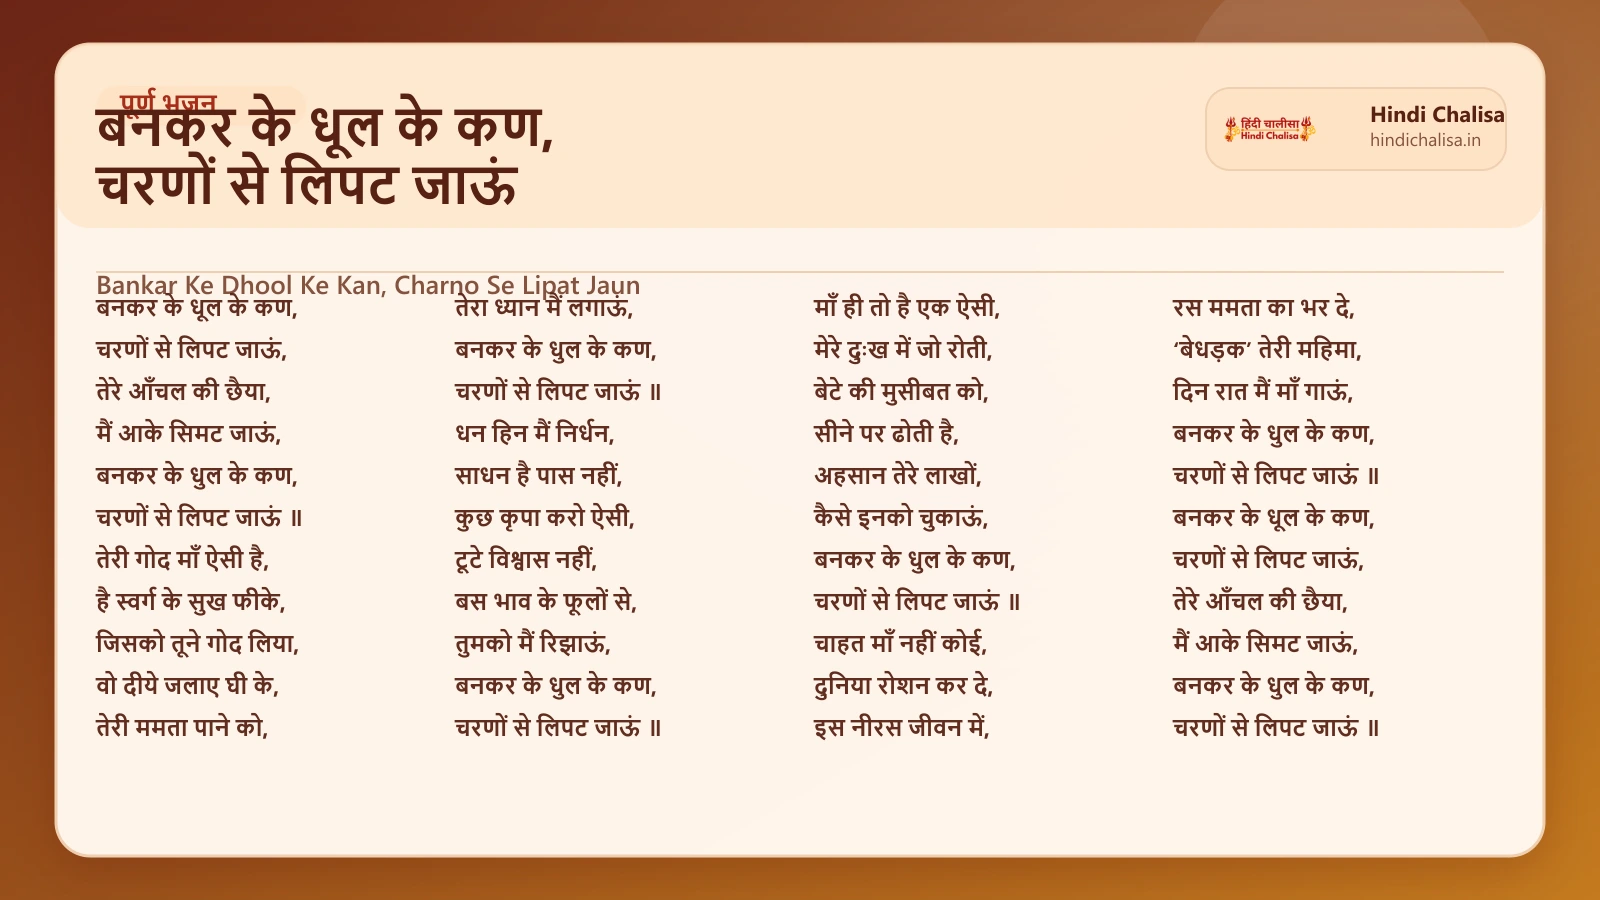 पूर्ण भजन
बनकर के धूल के कण,
चरणों से लिपट जाऊं
हिंदी चालीसा
Hindi Chalisa
Hindi Chalisa
hindichalisa.in
Bankar Ke Dhool Ke Kan, Charno Se Lipat Jaun
बनकर के धूल के कण,
चरणों से लिपट जाऊं,
तेरे आँचल की छैया,
मैं आके सिमट जाऊं,
बनकर के धुल के कण,
चरणों से लिपट जाऊं ॥
तेरी गोद माँ ऐसी है,
है स्वर्ग के सुख फीके,
जिसको तूने गोद लिया,
वो दीये जलाए घी के,
तेरी ममता पाने को,
तेरा ध्यान मैं लगाऊं,
बनकर के धुल के कण,
चरणों से लिपट जाऊं ॥
धन हिन मैं निर्धन,
साधन है पास नहीं,
कुछ कृपा करो ऐसी,
टूटे विश्वास नहीं,
बस भाव के फूलों से,
तुमको मैं रिझाऊं,
बनकर के धुल के कण,
चरणों से लिपट जाऊं ॥
माँ ही तो है एक ऐसी,
मेरे दुःख में जो रोती,
बेटे की मुसीबत को,
सीने पर ढोती है,
अहसान तेरे लाखों,
कैसे इनको चुकाऊं,
बनकर के धुल के कण,
चरणों से लिपट जाऊं ॥
चाहत माँ नहीं कोई,
दुनिया रोशन कर दे,
इस नीरस जीवन में,
रस ममता का भर दे,
‘बेधड़क’ तेरी महिमा,
दिन रात मैं माँ गाऊं,
बनकर के धुल के कण,
चरणों से लिपट जाऊं ॥
बनकर के धूल के कण,
चरणों से लिपट जाऊं,
तेरे आँचल की छैया,
मैं आके सिमट जाऊं,
बनकर के धुल के कण,
चरणों से लिपट जाऊं ॥